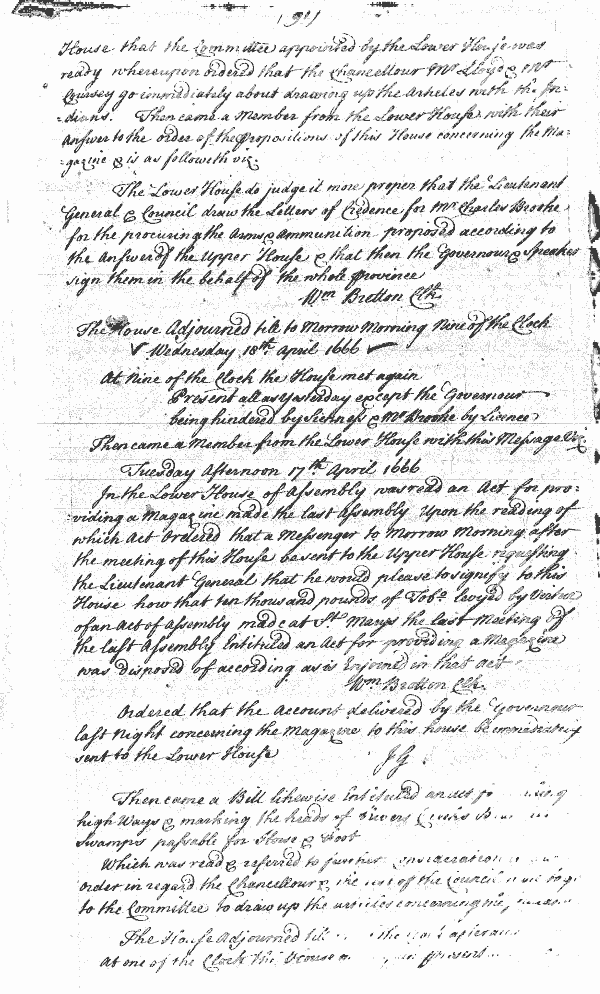 House that the Committee appointed by the Lower House was
ready whereupon ordered that the Chancellour Mr Lloyd & Mr
Coursey go immediately about drawing up the Articles with the In-
-dians. Then came a Member from the Lower House with their
Answer to the order of the propositions of this House concerning the Ma-
-gazine & is as followeth viz.
The Lower House do judge it more proper that the Lieutenant
General & Council draw the Letters of Credence for Mr Charles Brooke
for the procuring the Arms & Ammunition proposed according to
the Answer of the Upper House & that then the Governour & Speaker
sign them in the behalf of the whole province
Wm Bretton Clk
The House Adjourned till to Morrow Morning Nine of the Clock
Wednesday 18th April 1666
At Nine of the Clock the House met again
Present all as Yesterday except the Governour
being hindered by Sickness & Mr Brooke by Licence
Then came a Member from the Lower House with this Message Viz
Tuesday Afternoon 17th April 1666
In the Lower House of Assembly was read an Act for pro-
-viding a Magazine made the last Assembly Upon the reading of
which Act Ordered that a Messenger to Morrow Morning after
the meeting of this House be sent to the Upper House requesting
the Lieutenant General that he would please to signify to this
House how that ten thousand pounds of Tobo levyed by Vertue
of an Act of Assembly made at St Marys the last Meeting of
the last Assembly Entituled an Act for providing a Magazine
was disposed of according as is Enjoined in that act
Wm Bretton Clk.
Ordered that the Account delivered by the Governour
last Night concerning the Magazine to this house be immediately
sent to the Lower House
Then came a Bill likewise Entituled an act
high Ways & marking the heads of Rivers Creeks
Swamps passable for Horse & Foot
Which was read & referred to further Consideration
order in regard the Chancellour & the rest of the Council
to the Committee to draw up the articles concerning
The House Adjourned till the
At one of the Clock the House present